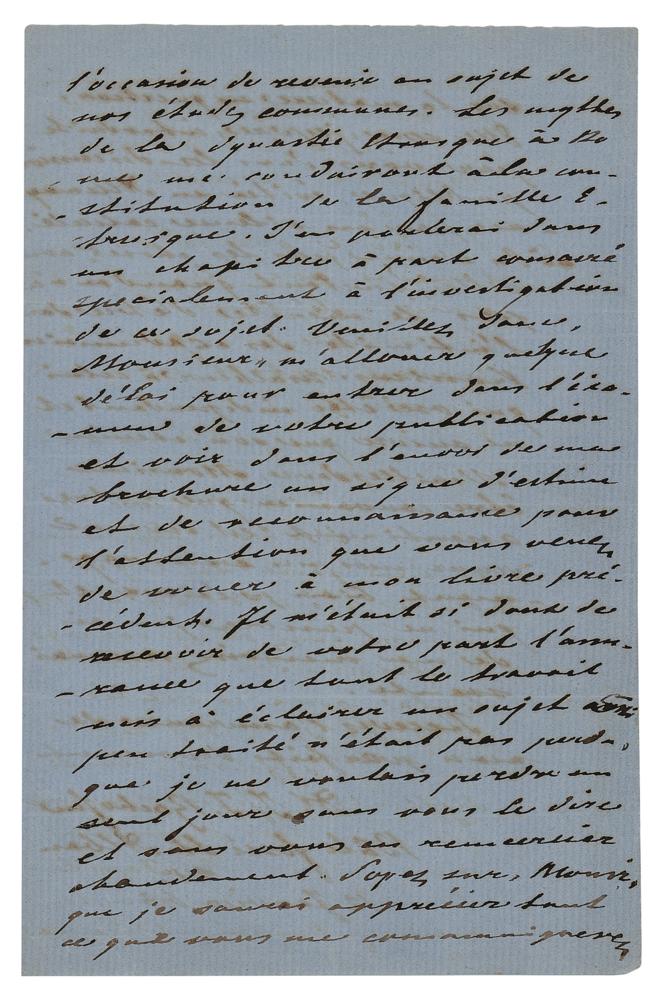 l'occasion de revenir au sujet de
nos études communes. Les mythes
de la dynastie Etrusque à Ro
me me conduiront à la con-
-stitution de la famille E-
trusque. J'en parlerai dans
un chapitre à part consacré
specialement à l'investigation
de ce sujet. Veuillez donc,
Monsieur, m'allouer quelque
délai pour entrer dans l'éxa-
-men de votre publication
et voir dans l'envoi de ma
brochure un signe d'estime
et de reconnaissance pour
l'attention que vous venez
de vouer à mon livre pré-
-cédent. Il m'était si doux de
recevoir de votre part l'assu-
-rance que tout le travail
mis à éclairer un sujet aussi
peu traité n'était pas perdu,
que je ne voulais perdre un
seul jour sans vous le dire
et sans vous en remercier
chaudement. Soyez sur, Monsr,
que je saurai apprécier tout
ce que vous me communiquerez